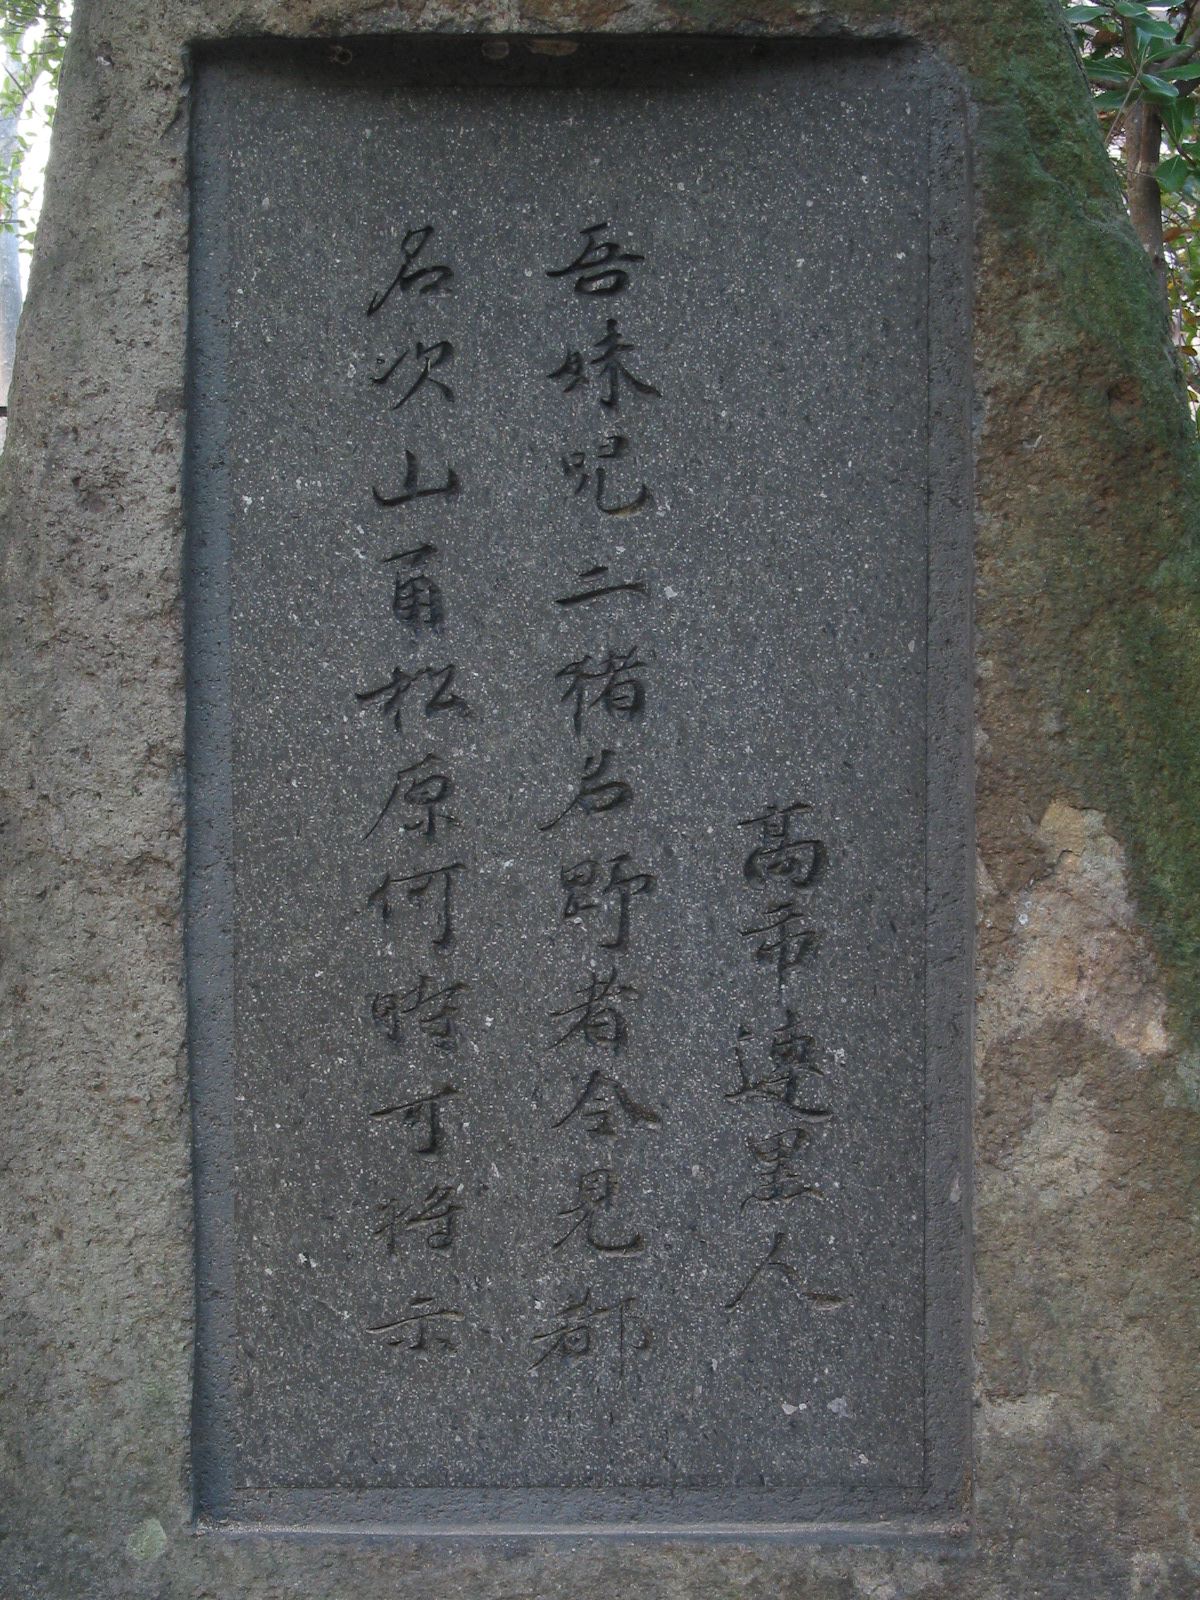 髙市連黒人
吾妹兒二猪名野者令見都
名次山角松原何時可将示